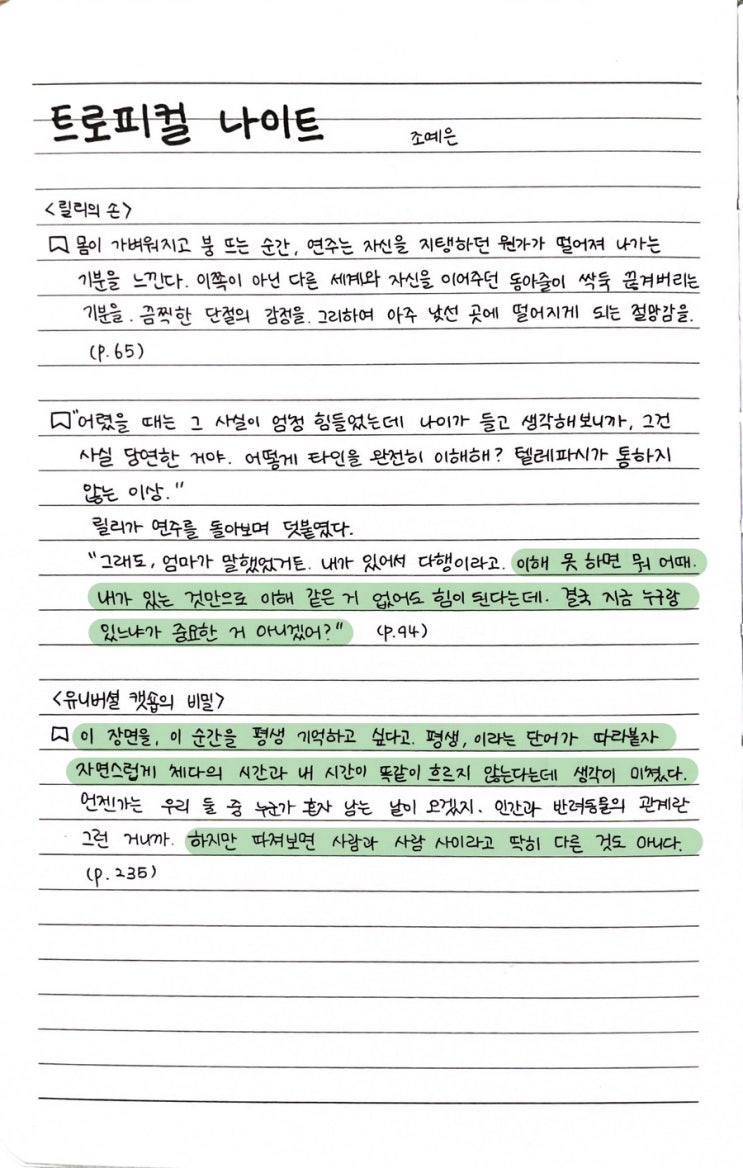 트로피컬 나이트
조예은
<릴리의 손>
몸이 가벼워지고 붕 뜨는 순간, 연주는 자신을 지탱하던 뭔가가 떨어져 나가는
기분을 느낀다. 이쪽이 아닌 다른 세계와 자신을 이어주던 동아줄이 싹둑 끊겨버리는
기분을. 끔찍한 단절의 감정을. 그리하여 아주 낯선 곳에 떨어지게 되는 절망감을.
(p.65)
"어렸을 때는 그 사실이 엄청 힘들었는데 나이가 들고 생각해보니까, 그건
사실 당연한 거야. 어떻게 타인을 완전히 이해해? 텔레파시가 통하지
않는 이상."
릴리가 연주를 돌아보며 덧붙였다.
"그래도, 엄마가 말했었거든. 내가 있어서 다행이라고. 이해 못 하면 뭐 어때.
내가 있는 것만으로 이해 같은 거 없어도 힘이 된다는데. 결국 지금 누구랑
있느냐가 중요한 거 아니겠어?" (p.94)
<유니버설 캣숍의 비밀>
이 장면을, 이 순간을 평생 기억하고 싶다고. 평생, 이라는 단어가 따라붙자
자연스럽게 체다의 시간과 내 시간이 똑같이 흐르지 않는다는데 생각이 미쳤다.
언젠가는 우리 둘 중 누군가 혼자 남는 날이 오겠지. 인간과 반려동물의 관계란
그런 거니까. 하지만 따져보면 사람과 사람 사이라고 딱히 다른 것도 아니다.
(p.235)